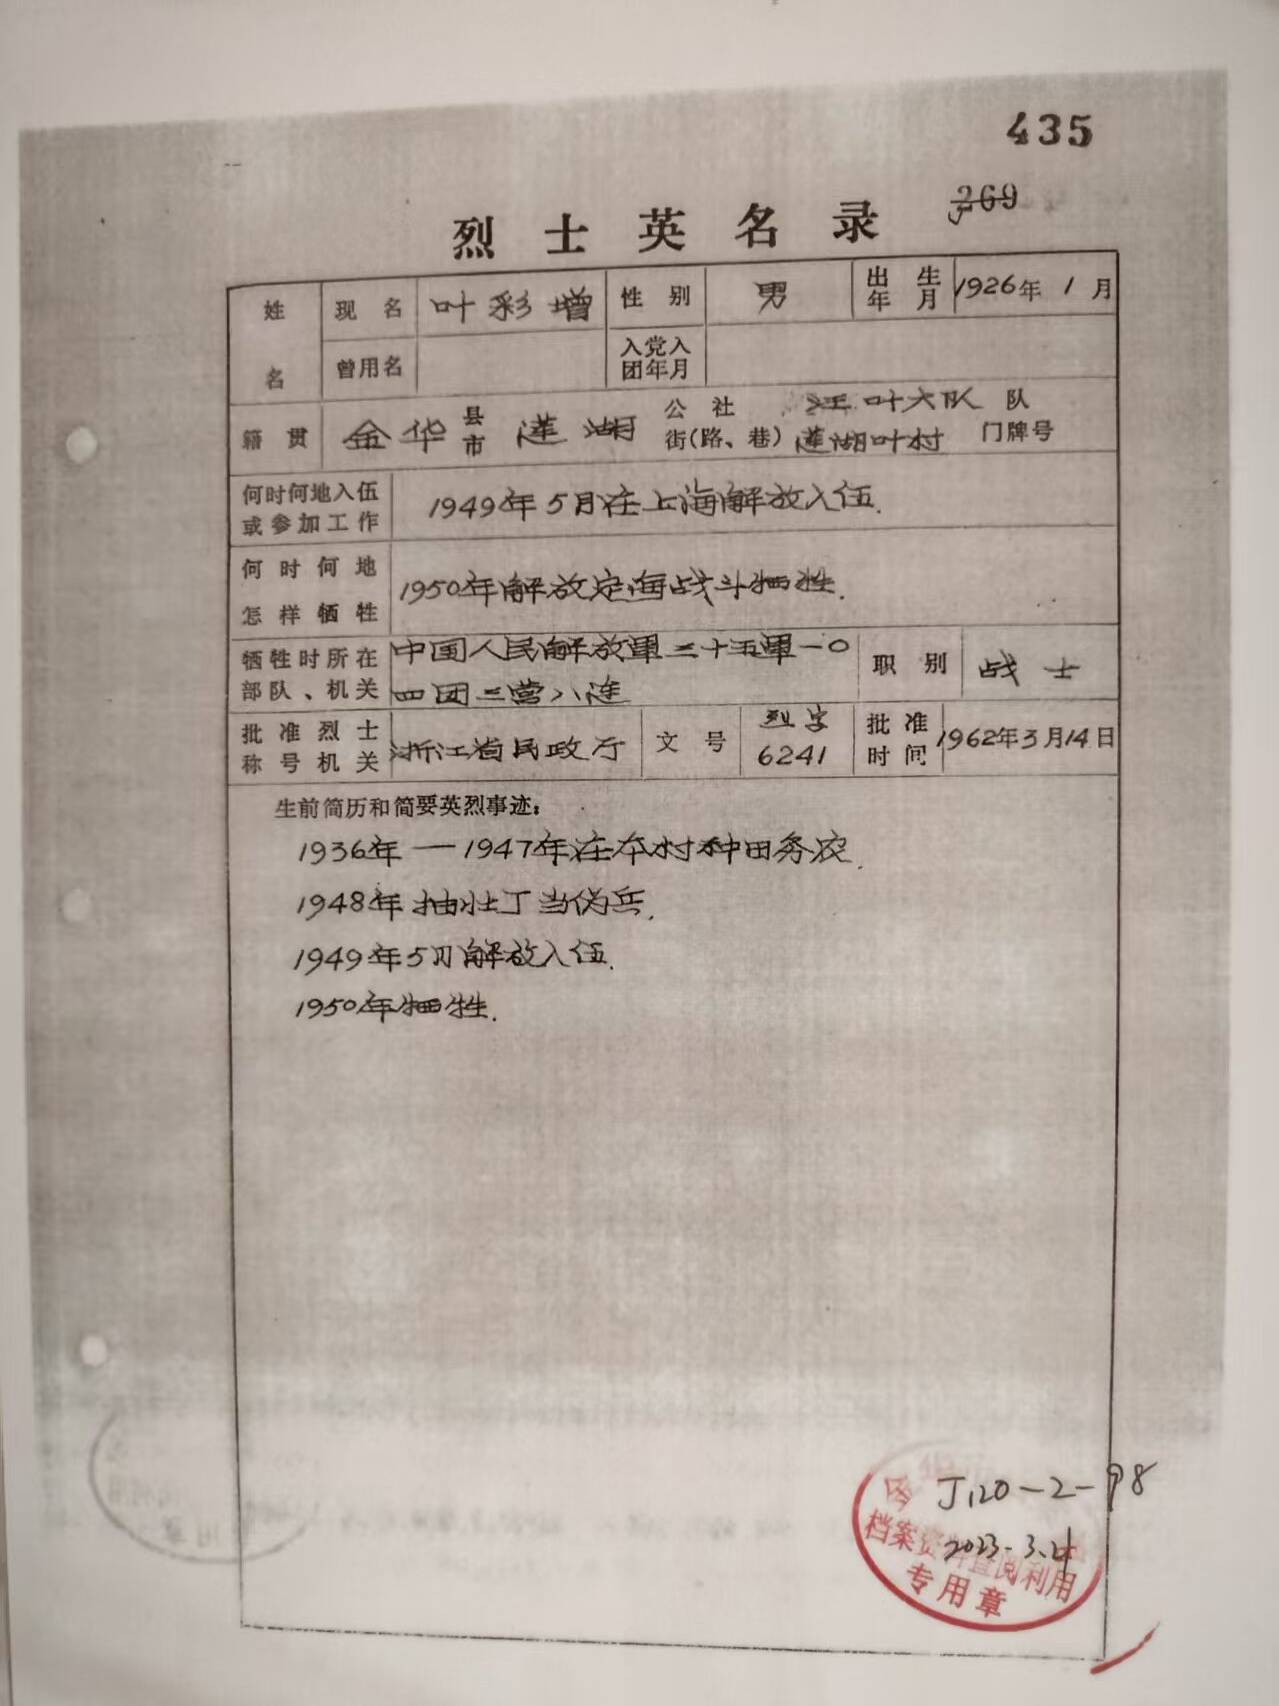 435
269
烈士英名录
姓名 现名 叶彩增 性别 男 出生年月 1926年1月
曾用名 入党入团年月
籍贯 金华 县市 莲湖 公社 街(路、巷) 江叶大队 队
莲湖叶村 门牌号
何时何地入伍或参加工作 1949年5月在上海解放入伍.
何时何地怎样牺牲 1950年解放定海战斗牺牲.
牺牲时所在部队、机关 中国人民解放軍三十五軍一〇
四团三营八连 职别 战士
批准烈士称号机关 浙江省民政厅 文号 烈字6241 批准时间 1962年3月14日
生前简历和简要英烈事迹:
1936年—1947年在本村种田务农.
1948年抽壮丁当伪兵.
1949年5月解放入伍.
1950年牺牲.
J120-2-98
2023.3.21
档案资料查阅利用
专用章